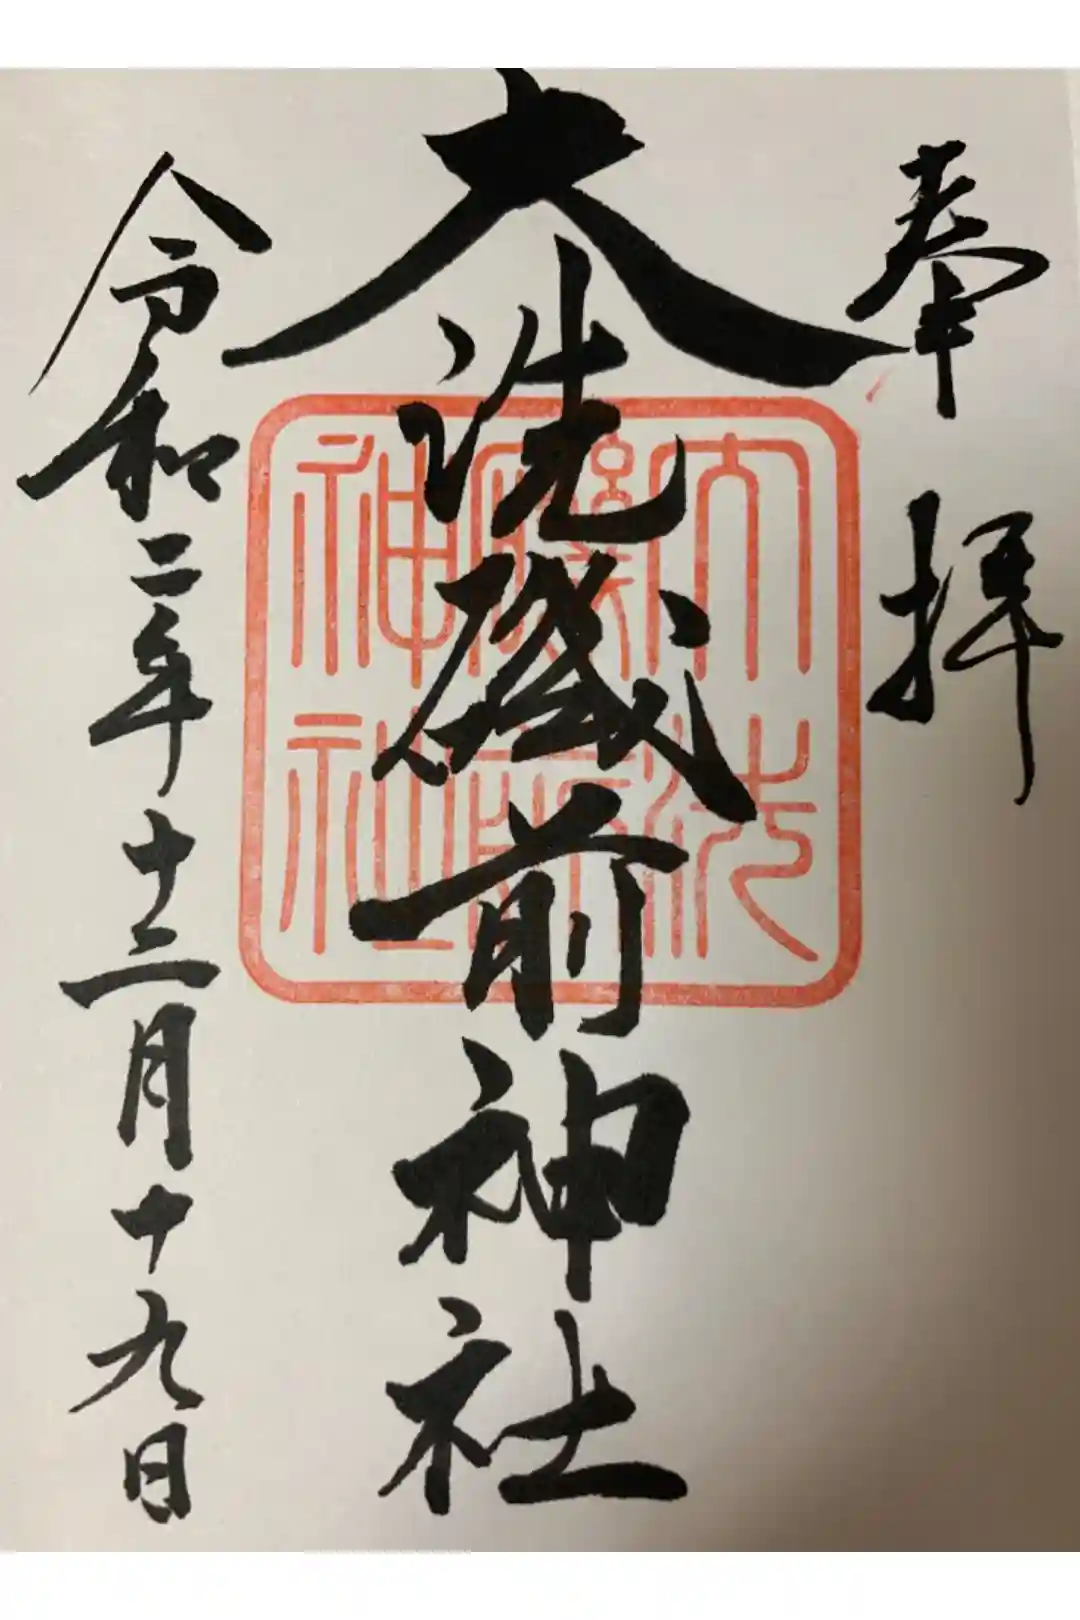 奉拝
大洗磯前神社
令和二年十二月十九日
大洗
磯前
神社